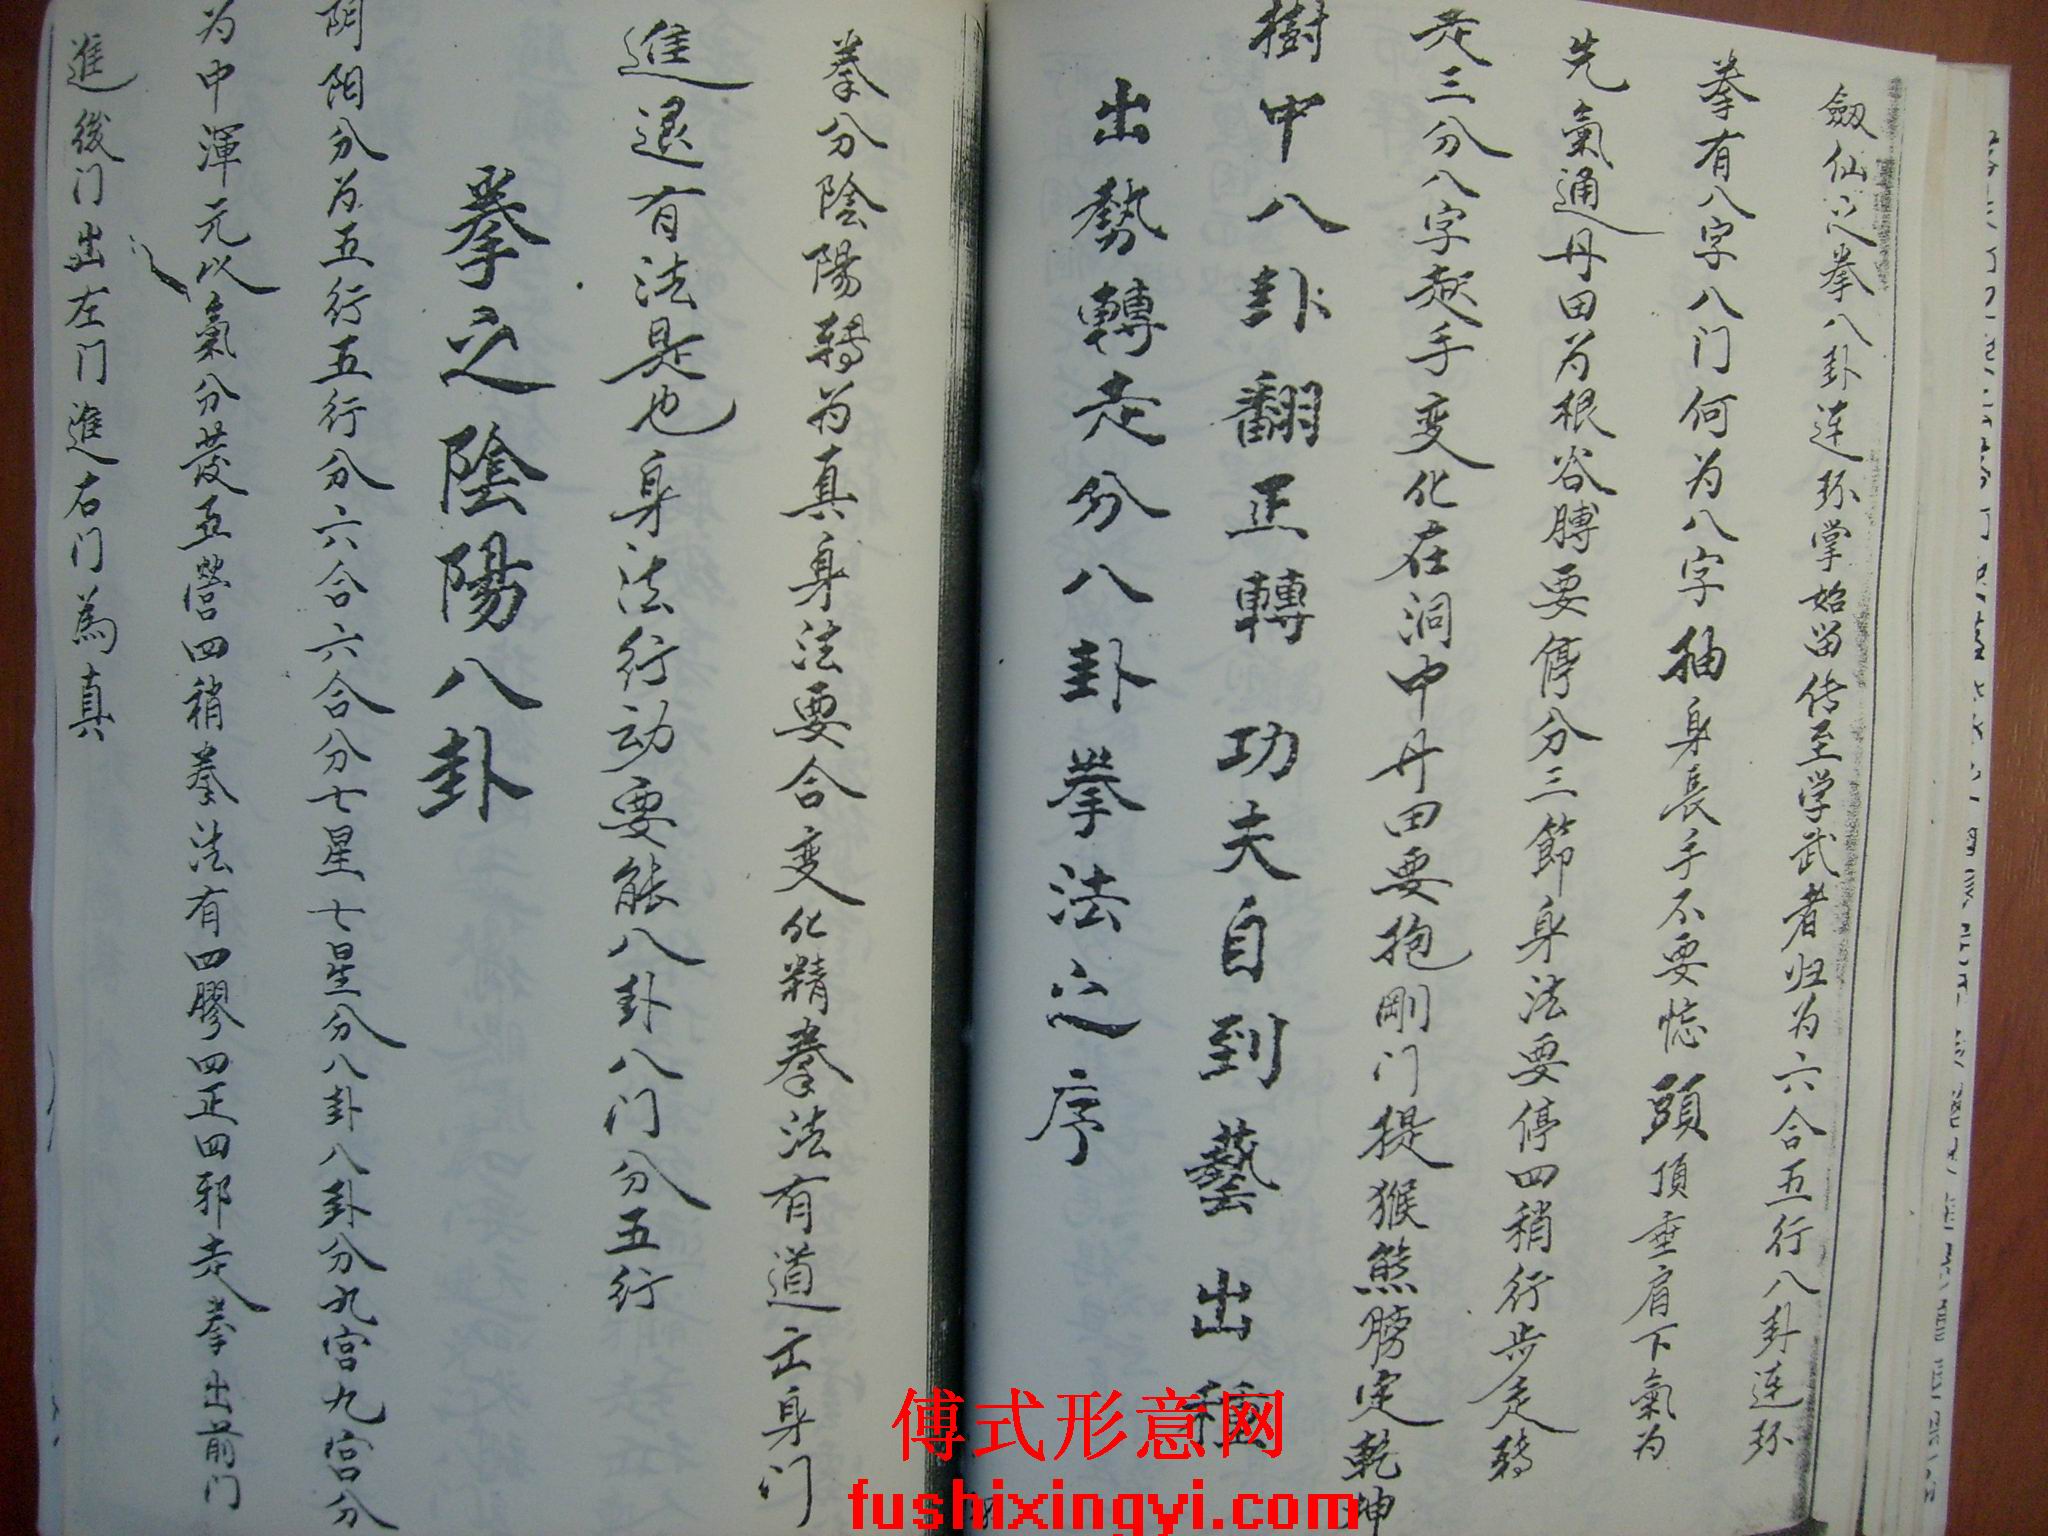 劔仙之拳八卦连环掌始留传至学武者归为六合五行八卦连环
拳有八字八门何为八字抽身長手不要慌頭頂垂肩下氣为
先氣通丹田为根谷膊要停分三節身法要停四稍行步走转
走三分八字起手变化在洞中丹田要抱剛门提猴熊膀定乾坤
樹中八卦翻正轉功夫自到藝出種
出勢轉走分八卦拳法之序
拳分陰陽转为真身法要合变化精拳法有道立身门
進退有法是也身法行动要能八卦八门分五行
拳之陰陽八卦
阴阳分为五行五行分六合六合分七星七星分八卦八卦分九宫九宫分
为中渾元以氣分發五营四稍拳法有四膠四正四邪走拳出前门
進後门出左门進右门為真
傅式形意网
fushixingyi.com